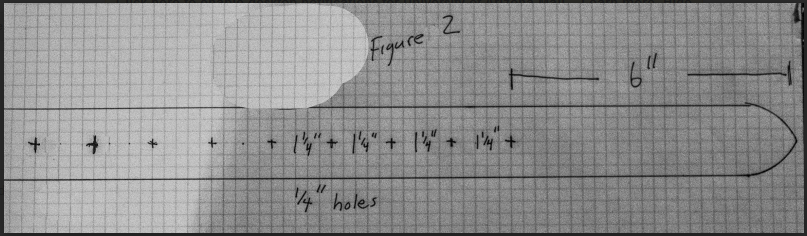 Figure 2
6"
+ + + + + 1 1/4" + 1 1/4" + 1 1/4" + 1 1/4" +
1/4" holes